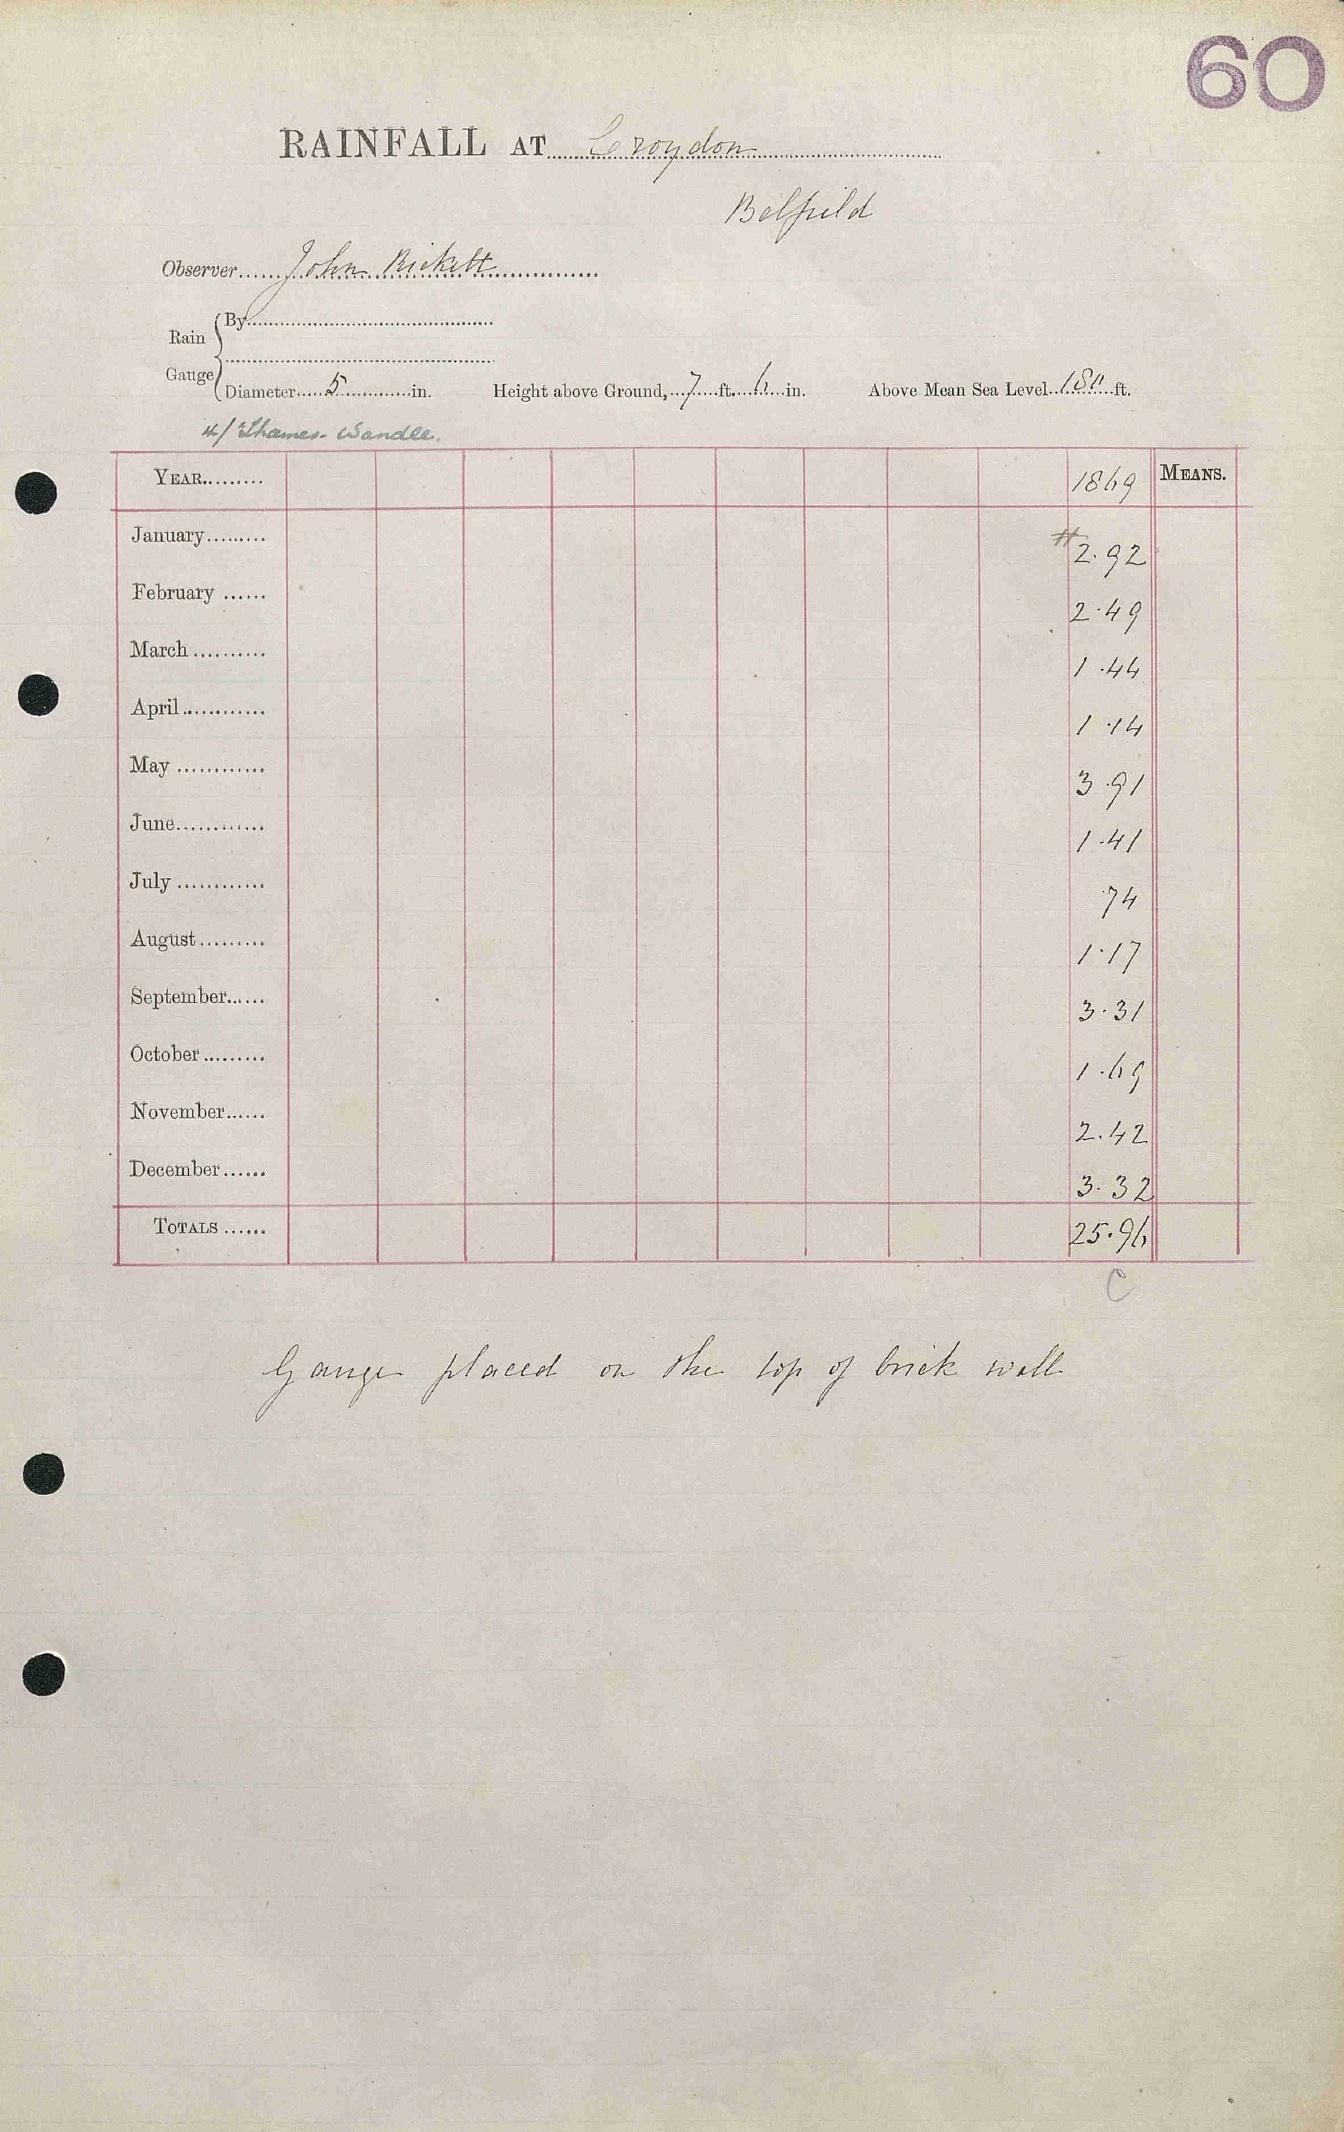 60
RAINFALL AT Croydon
Belfield
Observer John Rickett
Rain Gauge
By
Diameter 5 in. Height above Ground, 7 ft. 6 in. Above Mean Sea Level 180 ft.
4/ Thames-Wandle.
YEAR 1869 MEANS.
January # 2.92
February 2.49
March 1.44
April 1.14
May 3.91
June 1.41
July .74
August 1.17
September 3.31
October 1.69
November 2.42
December 3.32
TOTALS 25.96
C
Gauge placed on the top of brick wall